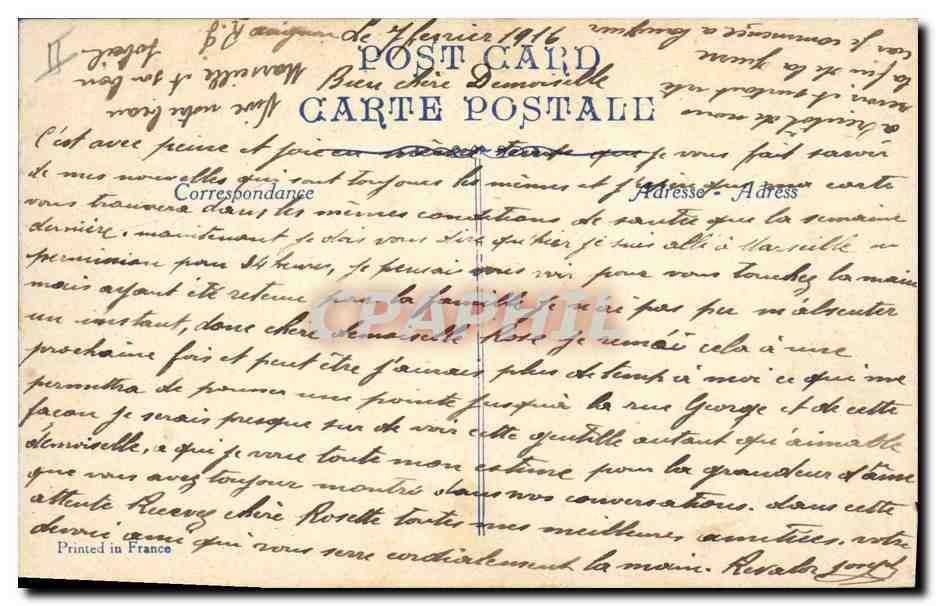 Avignon Le 7 fevrier 1916
POST CARD
Bien chère Demoiselle
CARTE POSTALE
C'est avec peine et joie en même temps que je vous fait savoir
de mes nouvelles qui sont toujours les mêmes et j'espère que ma carte
Correspondance
Adresse - Adress
vous trouvera dans les mêmes conditions de santée que la semaine
dernière, maintenant je dois vous dire qu'hier je suis allé à Marseille en
permission pour 24 heures, je pensais vous voir pour vous touchez la main
mais ayant été retenu par la famille je n'ai pas pu m'absenter
un instant, donc chère demoiselle Rose je remai cela à une
prochaine fois et peut être j'aurais plus de temp à moi ce qui me
permettra de pousser une pointe jusqu'à la rue George et de cette
façon je serais presque sur de voir cette gentille autant qu'aimable
demoiselle, a qui je voue toute mon estime pour la grandeur d'âme
que vous avez toujour montré dans nos conversations. dans cette
attente Recevez chère Rosette toutes mes meilleures amitiées. votre
dévoué ami qui vous serre cordialement la main. Revalor Joseph
Printed in France
a bientot de nous
revoir et surtout vite
la fin de la guerre
car je commence a languir
Vive notre beau
Marseille et son bon
Soleil
R. J
II
CPAPHIL